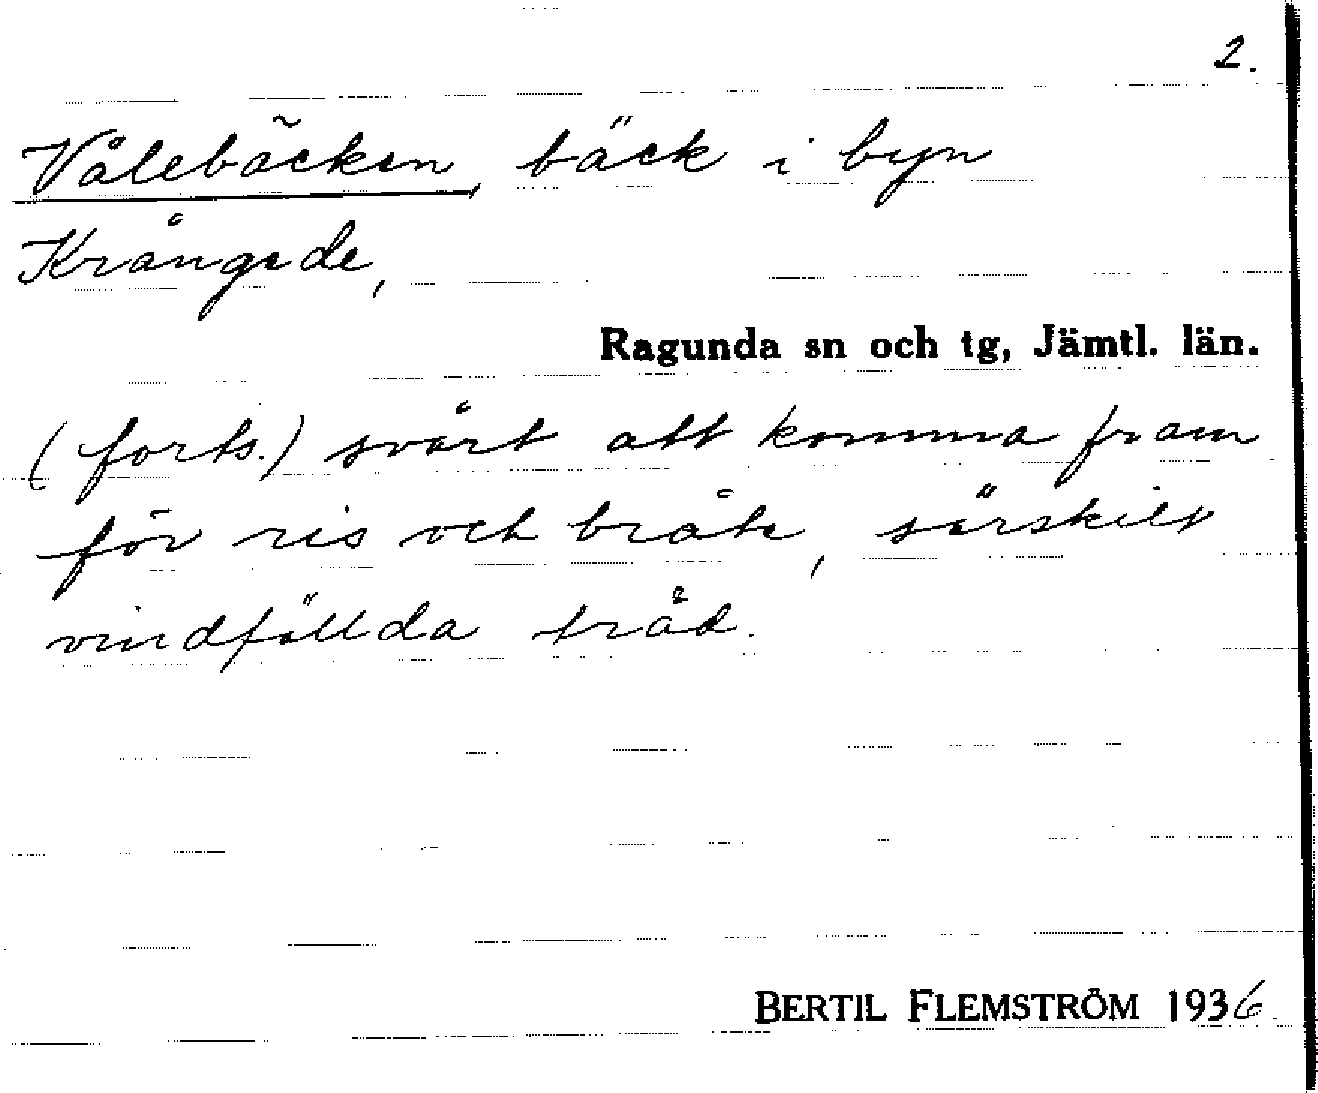 2.
Vålebäcken, bäck i byn
Krångede,
Ragunda sn och tg, Jämtl. län.
(forts.) svårt att komma fram
för ris och bråte, särskilt
vindfällda träd.
BERTIL FLEMSTRÖM 1936